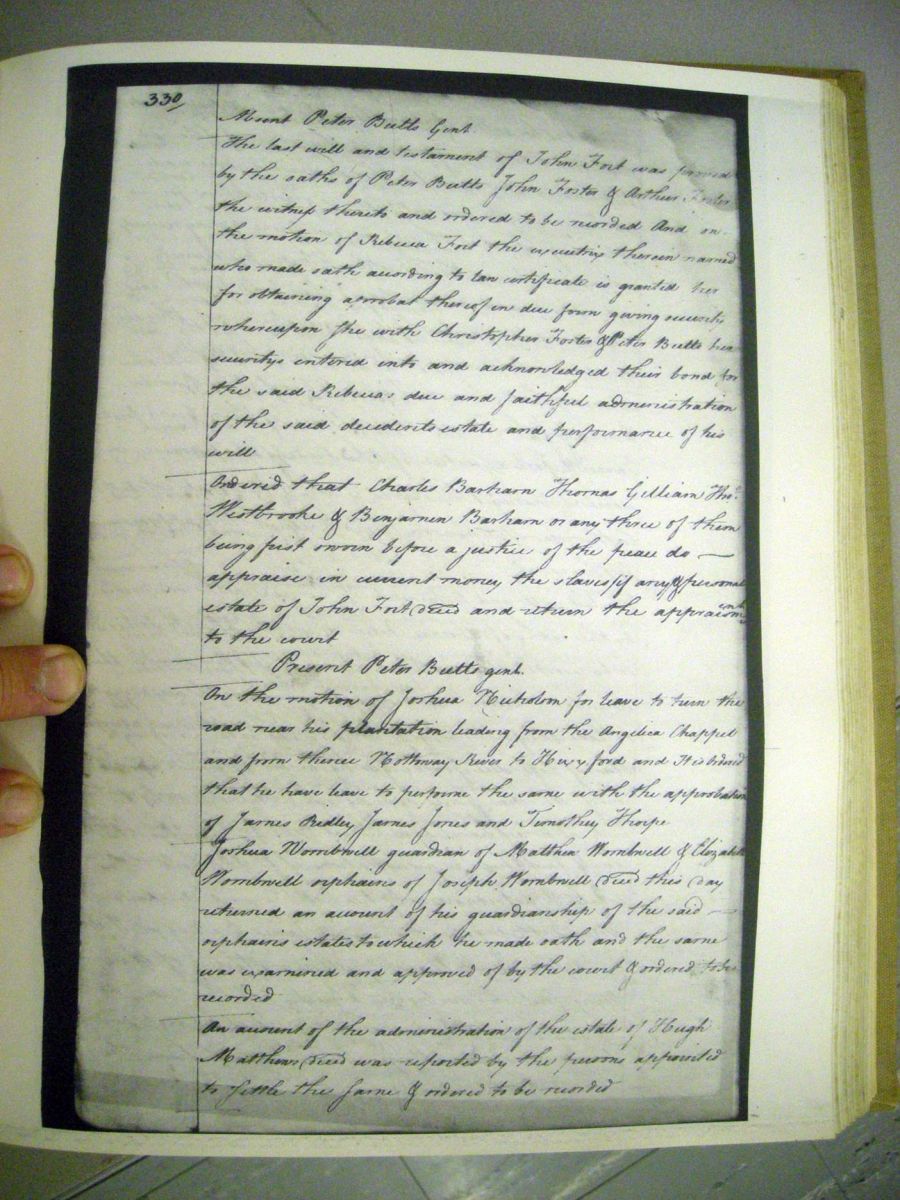 330/
Absent Peter Butts Gent.
The last will and testament of John Fort was proved
by the oaths of Peter Butts John Foster & Arthur Foster
the witness thereto and ordered to be recorded And on
the motion of Rebecca Fort the executrix therein named
who made oath according to law certificate is granted her
for obtaining a probat thereof in due form giving security
whereupon she with Christopher Foster & Peter Butts her
securitys entered into and acknowledged their bond for
the said Rebeccas due and faithful administration
of the said decedents estate and performance of his
will
Ordered that Charles Barham Thomas Gilliam Thos.
Westbrooke & Benjamin Barham or any three of them
being first sworn before a justice of the peace do —
appraise in current money the slaves (if any) & personal
estate of John Fort deced and return the appraisment
to the court
Present Peter Butts gent.
On the motion of Joshua Nicholson for leave to turn the
road near his plantation leading from the Angelica Chappel
and from thence Nottoway River to ford and It is Ordered
that he have leave to performe the same with the approbation
of James Ridley James Jones and Timothey Thorpe
Joshua Wombwell guardian of Matthew Wombwell & Elizabeth
Wombwell orphains of Joseph Wombwell deced this day
returned an account of his guardianship of the said —
orphains estates to which he made oath and the same
was examined and approved of by the court & ordered to be
recorded
An account of the administration of the estate of Hugh
Matthews deced was reported by the persons appointed
to settle the same & ordered to be recorded